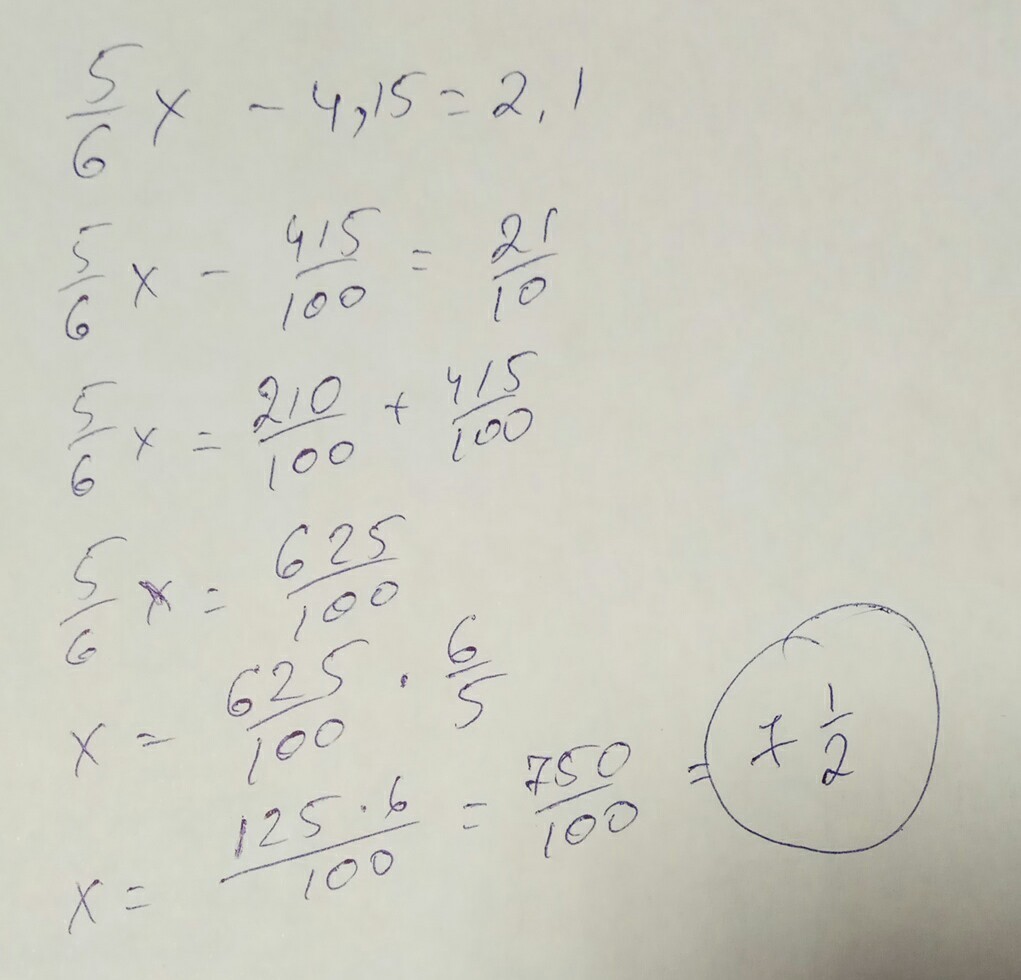 5/6 x - 4,15 = 2,1
5/6 x - 415/100 = 21/10
5/6 x = 210/100 + 415/100
5/6 x = 625/100
x = 625/100 · 6/5
x = 125·6/100 = 750/100 = 7 1/2